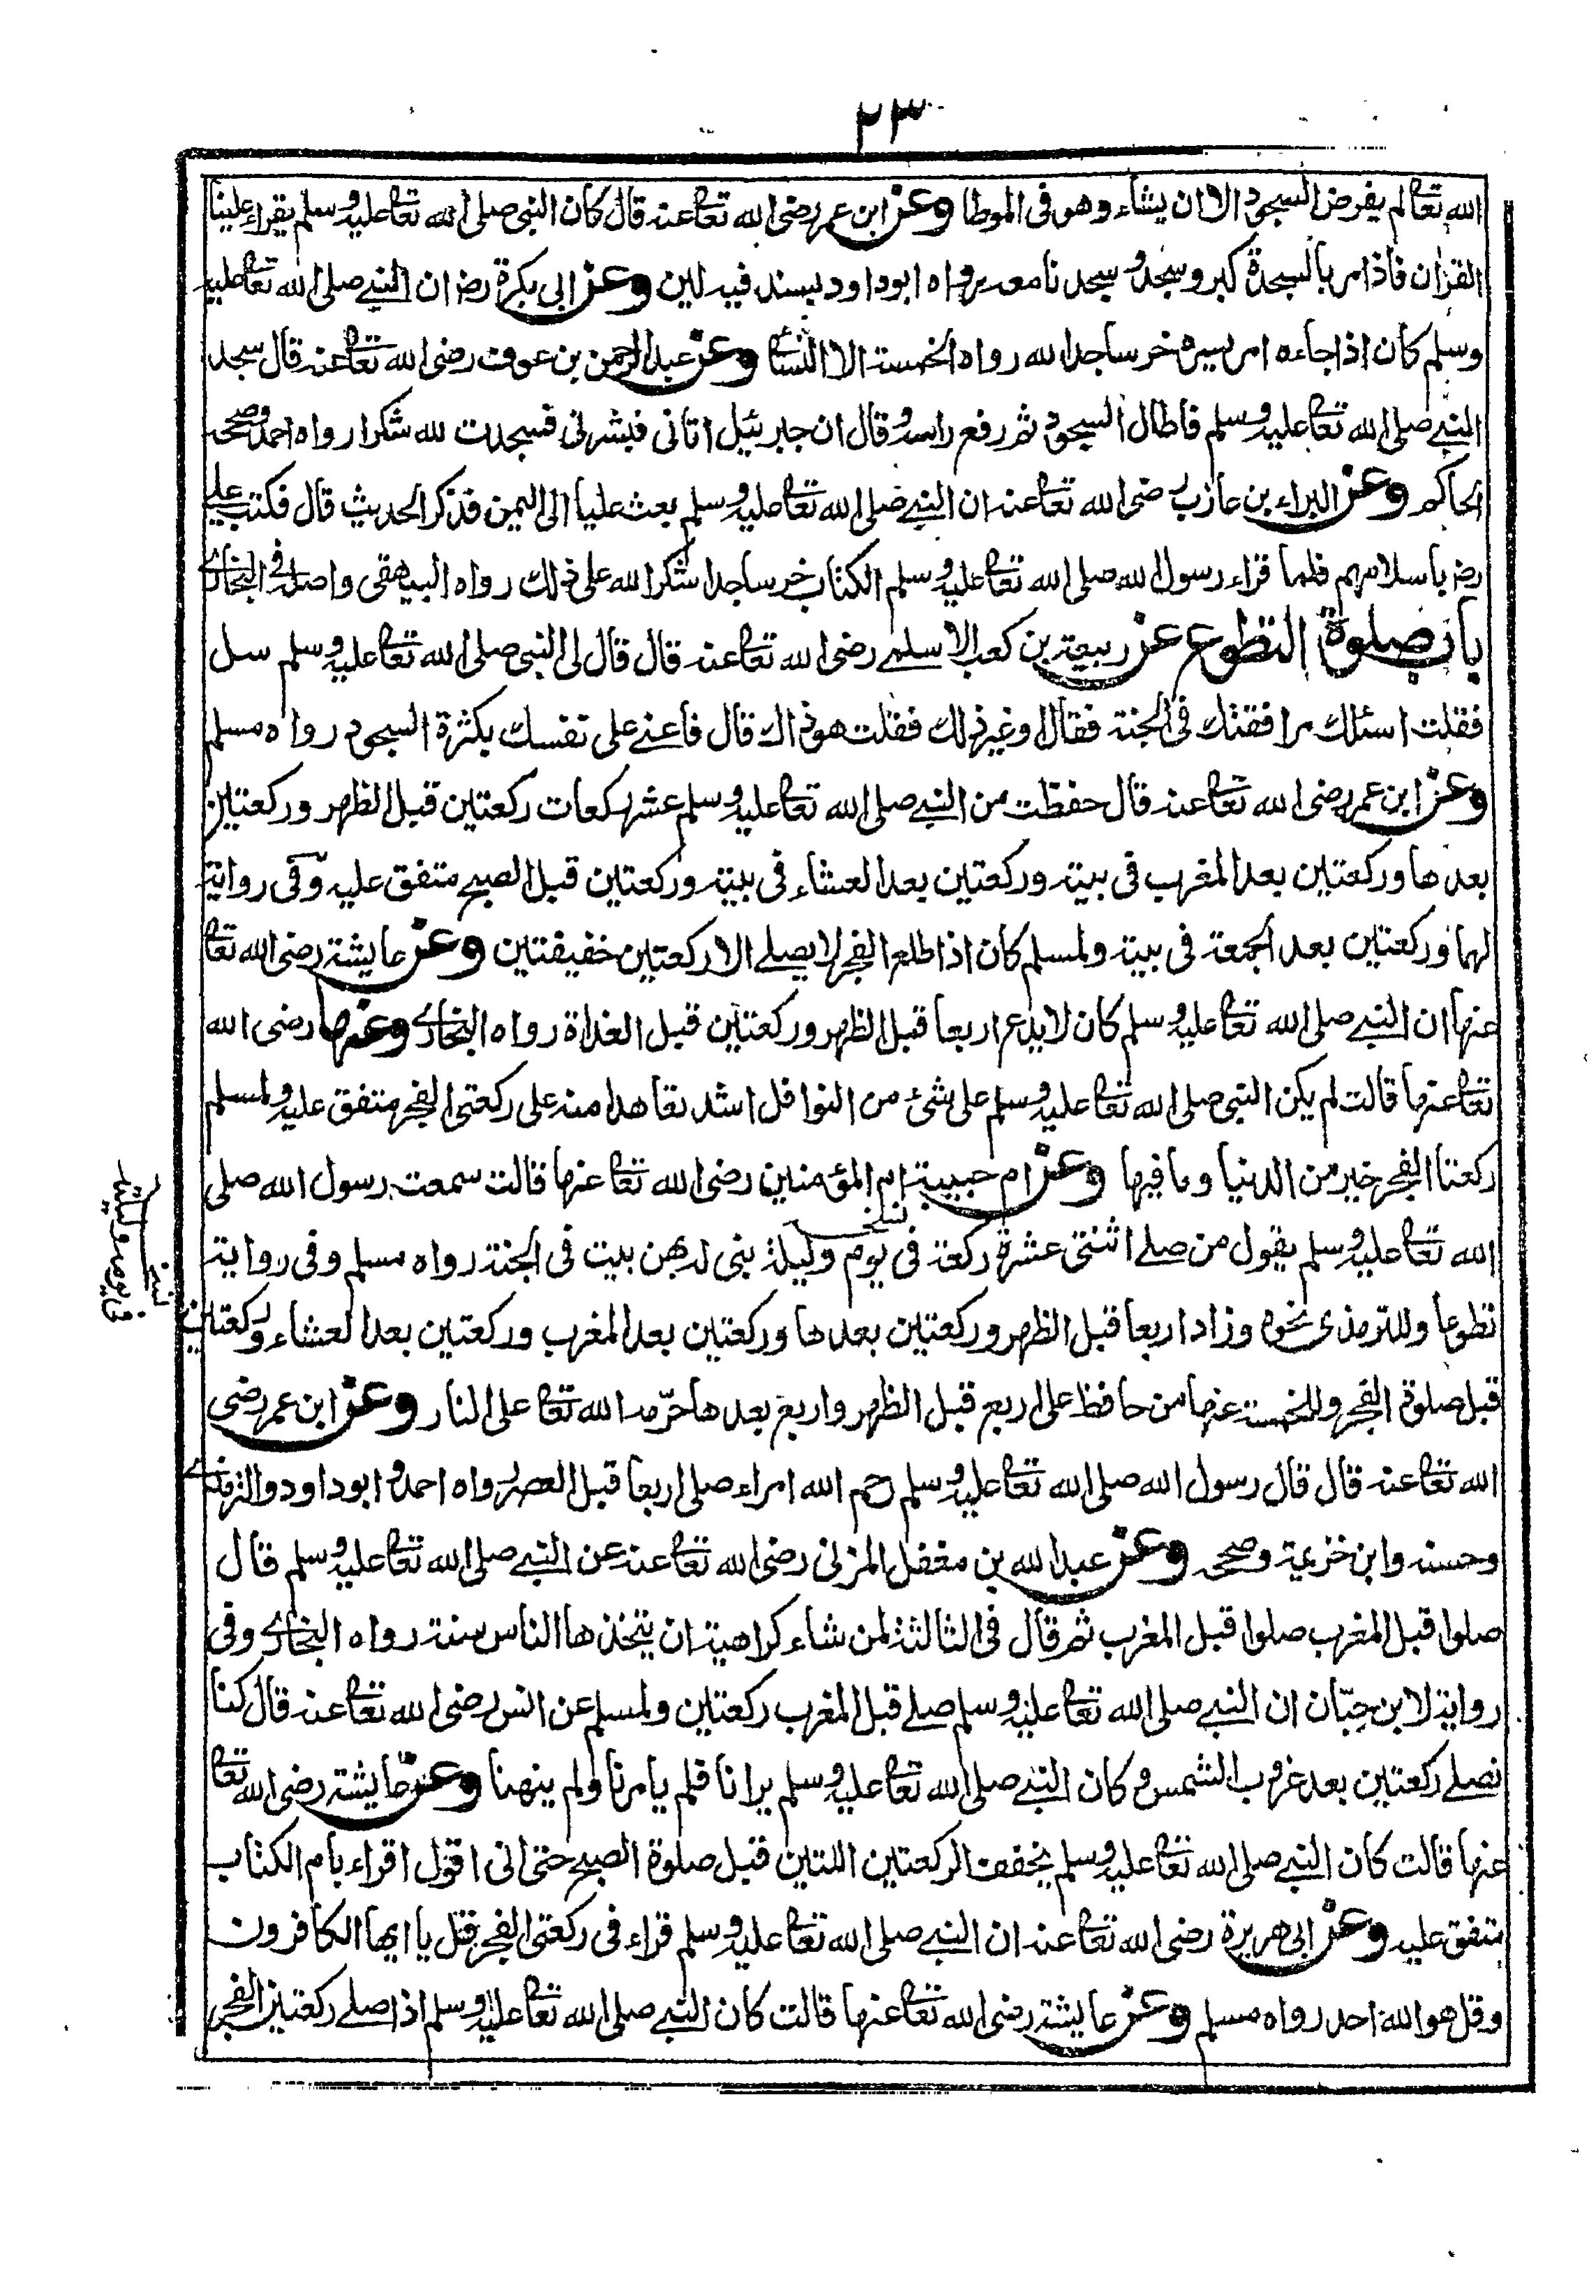 ٢٣
الله تعالى لم يفرض السجود الا ان يشاء وهو فى الموطا وعن ابن عمر رضى الله تعالى عنه قال كان النبى صلى الله تعالى عليه وسلم يقراء علينا
القران فاذا مر بالسجدة كبر وسجد وسجدنا معه رواه ابوداود بسند فيه لين وعن ابى بكرة رضـ ان النبى صلى الله تعالى عليه
وسلم كان اذا جاءه امر يسره خر ساجدا لله رواه الخمسة الا النسائى وعن عبد الرحمن بن عوف رضى الله تعالى عنه قال سجد
النبى صلى الله تعالى عليه وسلم فاطال السجود ثم رفع راسه وقال ان جبرئيل اتانى فبشرنى فسجدت لله شكرا رواه احمد وصححه
الحاكم وعن البراء بن عازب رضى الله تعالى عنه ان النبى صلى الله تعالى عليه وسلم بعث عليا الى اليمن فذكر الحديث قال فكتب على
رضـ باسلامهم فلما قراء رسول الله صلى الله تعالى عليه وسلم الكتاب خر ساجدا شكرا لله على ذلك رواه البيهقى واصله فى البخارى
باب صلوة التطوع عن ربيعة بن كعب الاسلمى رضى الله تعالى عنه قال قال لى النبى صلى الله تعالى عليه وسلم سل
فقلت اسئلك مرافقتك فى الجنة فقال اوغير ذلك فقلت هو ذاك قال فاعنى على نفسك بكثرة السجود رواه مسلم
وعن ابن عمر رضى الله تعالى عنه قال حفظت من النبى صلى الله تعالى عليه وسلم عشر ركعات ركعتين قبل الظهر وركعتين
بعدها وركعتين بعد المغرب فى بيته وركعتين بعد العشاء فى بيته وركعتين قبل الصبح متفق عليه وفى رواية
لهما وركعتين بعد الجمعة فى بيته ولمسلم كان اذا طلع الفجر لا يصلى الا ركعتين خفيفتين وعن عايشة رضى الله تعالى
عنها ان النبى صلى الله تعالى عليه وسلم كان لا يدع اربعا قبل الظهر وركعتين قبل الغداة رواه البخارى وعنها رضى الله
تعالى عنها قالت لم يكن النبى صلى الله تعالى عليه وسلم على شئ من النوافل اشد تعاهدا منه على ركعتى الفجر متفق عليه ولمسلم
ركعتا الفجر خير من الدنيا وما فيها وعن ام حبيبة ام المؤمنين رضى الله تعالى عنها قالت سمعت رسول الله صلى
الله تعالى عليه وسلم يقول من صلى اثنتى عشرة ركعة فى يوم وليلة بنى له بهن بيت فى الجنة رواه مسلم وفى رواية
نسخه
فى يومه وليلته
تطوعا وللترمذى نحوه وزاد اربعا قبل الظهر وركعتين بعدها وركعتين بعد المغرب وركعتين بعد العشاء وركعتين
قبل صلوة الفجر وللخمسة عنها من حافظ على اربع قبل الظهر واربع بعدها حرّمه الله تعالى على النار وعن ابن عمر رضى
الله تعالى عنه قال قال رسول الله صلى الله تعالى عليه وسلم رحم الله امراء صلى اربعا قبل العصر رواه احمد وابوداود والترمذى
وحسنه وابن خزيمة وصححه وعن عبد الله بن مغفل المزنى رضى الله تعالى عنه عن النبى صلى الله تعالى عليه وسلم قال
صلوا قبل المغرب صلوا قبل المغرب ثم قال فى الثالثة لمن شاء كراهية ان يتخذها الناس سنة رواه البخارى وفى
رواية لابن حِبّان ان النبى صلى الله تعالى عليه وسلم صلى قبل المغرب ركعتين ولمسلم عن انس رضى الله تعالى عنه قال كنا
نصلى ركعتين بعد غروب الشمس وكان النبى صلى الله تعالى عليه وسلم يرانا فلم يامرنا ولم ينهنا وعن عايشة رضى الله تعالى
عنها قالت كان النبى صلى الله تعالى عليه وسلم يخفف الركعتين اللتين قبل صلوة الصبح حتى انى اقول اقراء بام الكتاب
متفق عليه وعن ابى هريرة رضى الله تعالى عنه ان النبى صلى الله تعالى عليه وسلم قراء فى ركعتى الفجر قل يا ايها الكافرون
وقل هو الله احد رواه مسلم وعن عايشة رضى الله تعالى عنها قالت كان النبى صلى الله تعالى عليه وسلم اذا صلى ركعتين الفجر